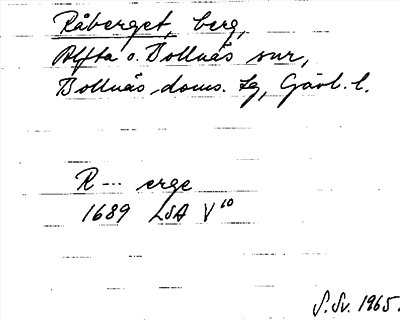 Råberget, berg,
Alfta o. Bollnäs snr,
Bollnäs doms. tg, Gävl. l.
R --- erge
1689 LSA V¹⁰
S. Sv. 1965.